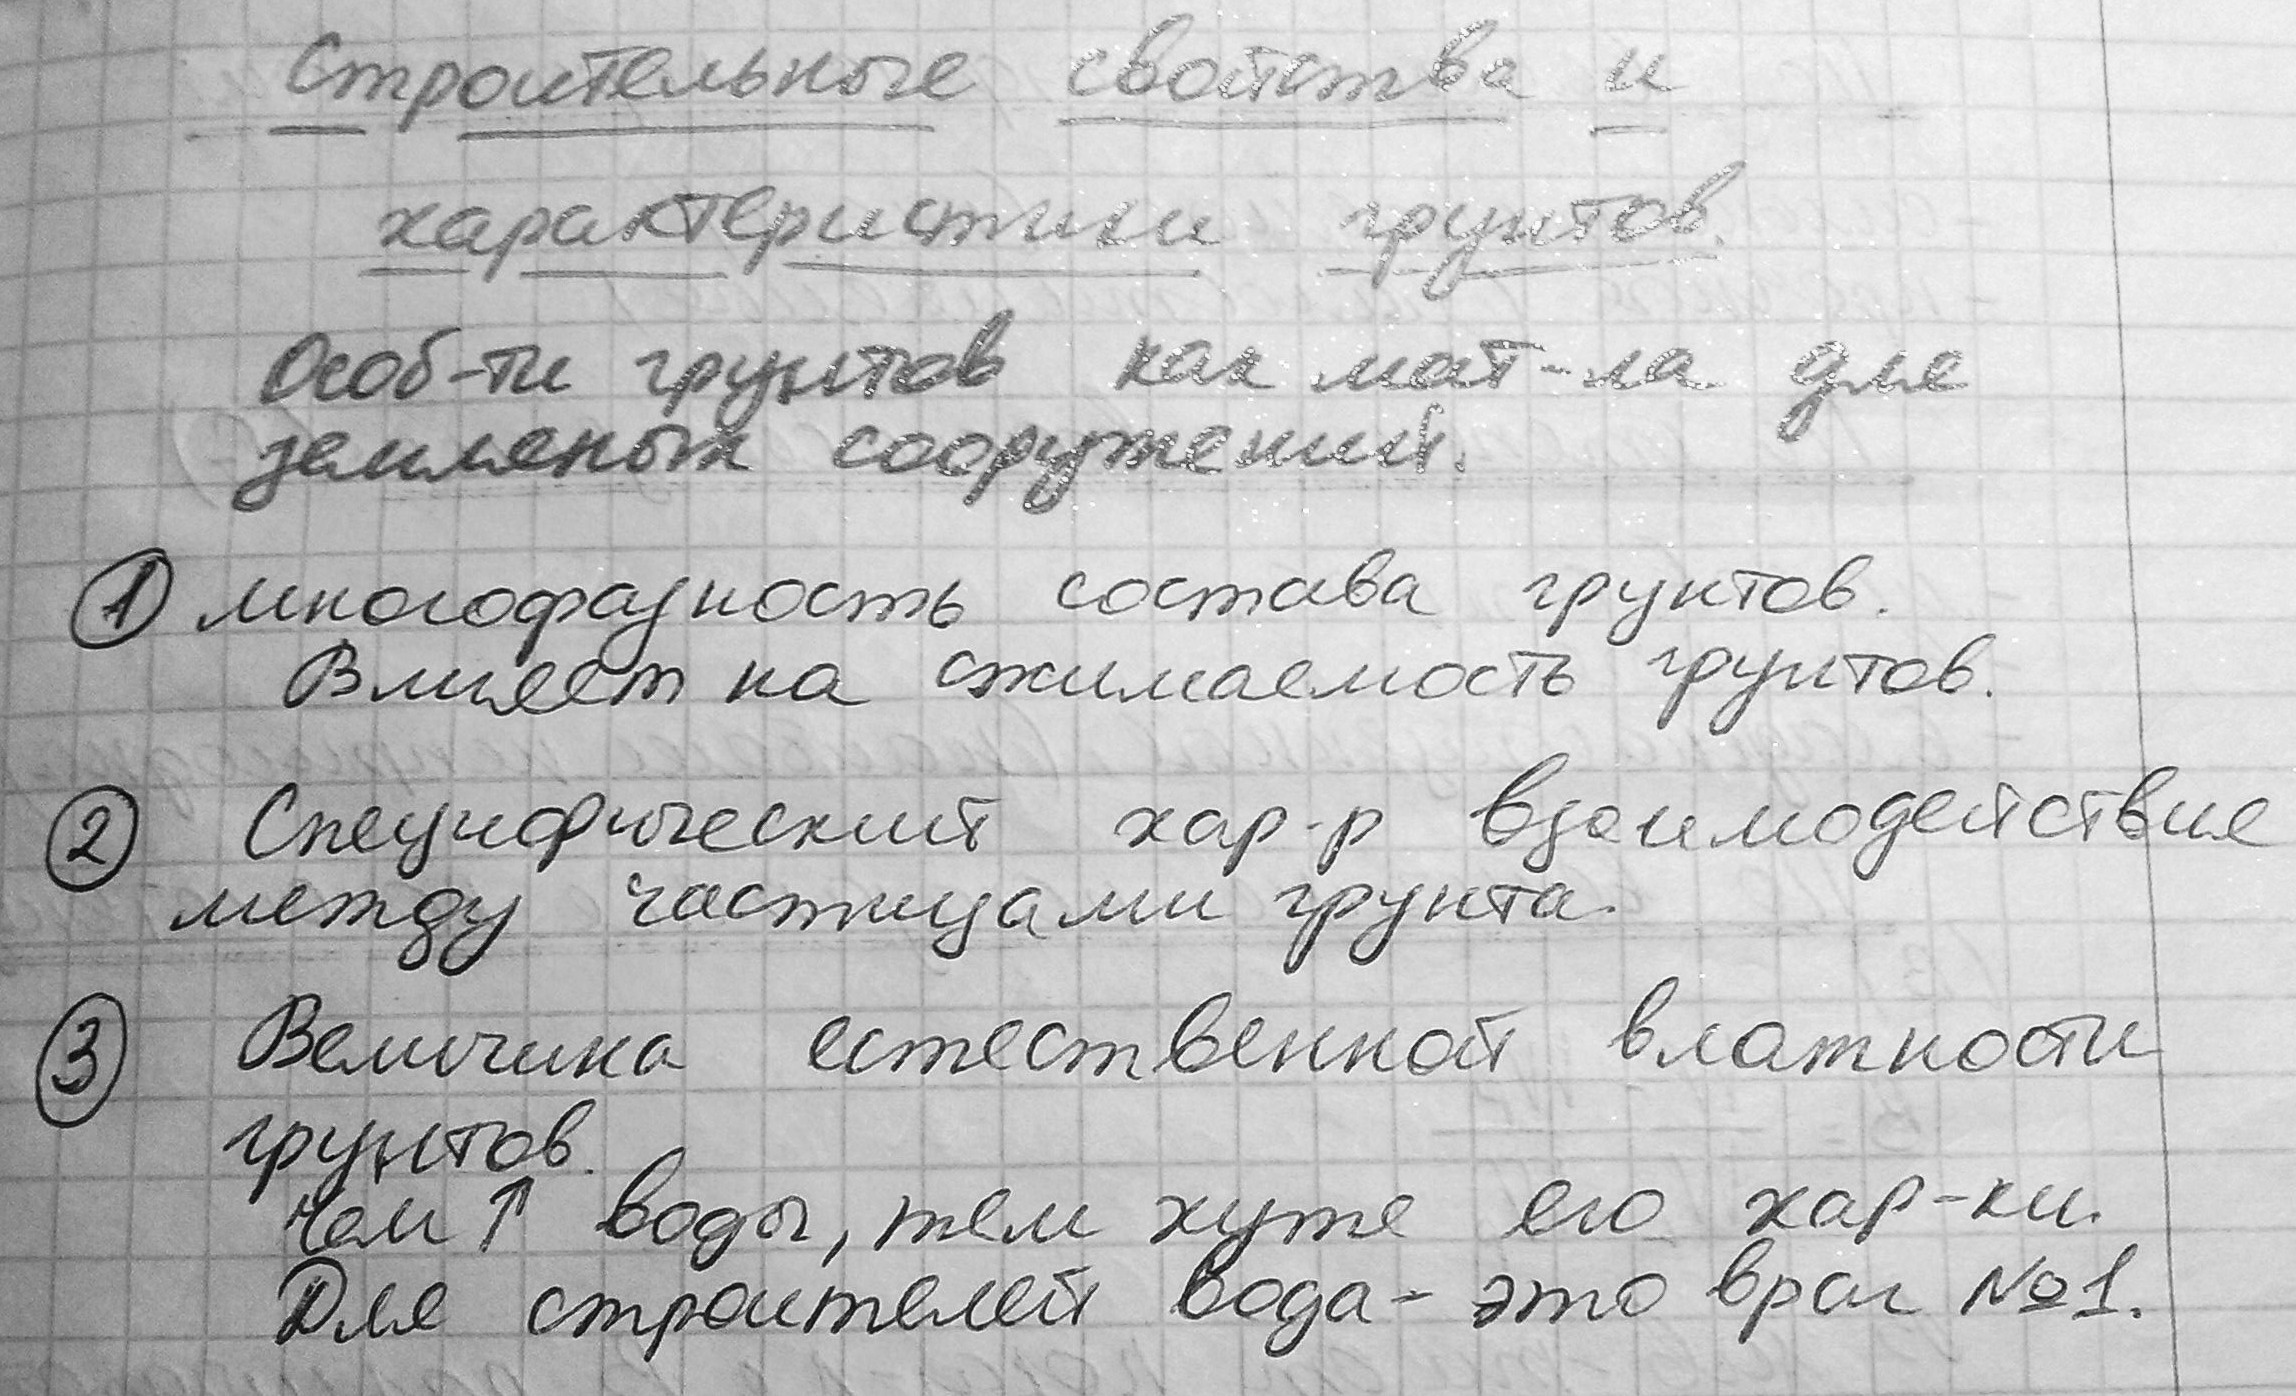 Строительные свойства и
характеристики грунтов.
Особ-ти грунтов как мат-ла для
земляных сооружений.
① многофазность состава грунтов.
Влияет на сжимаемость грунтов.
② Специфический хар-р взаимодействия
между частицами грунта.
③ Величина естественной влажности
грунтов.
Чем ↑ воды, тем хуже его хар-ки.
Для строителей вода - это враг №1.